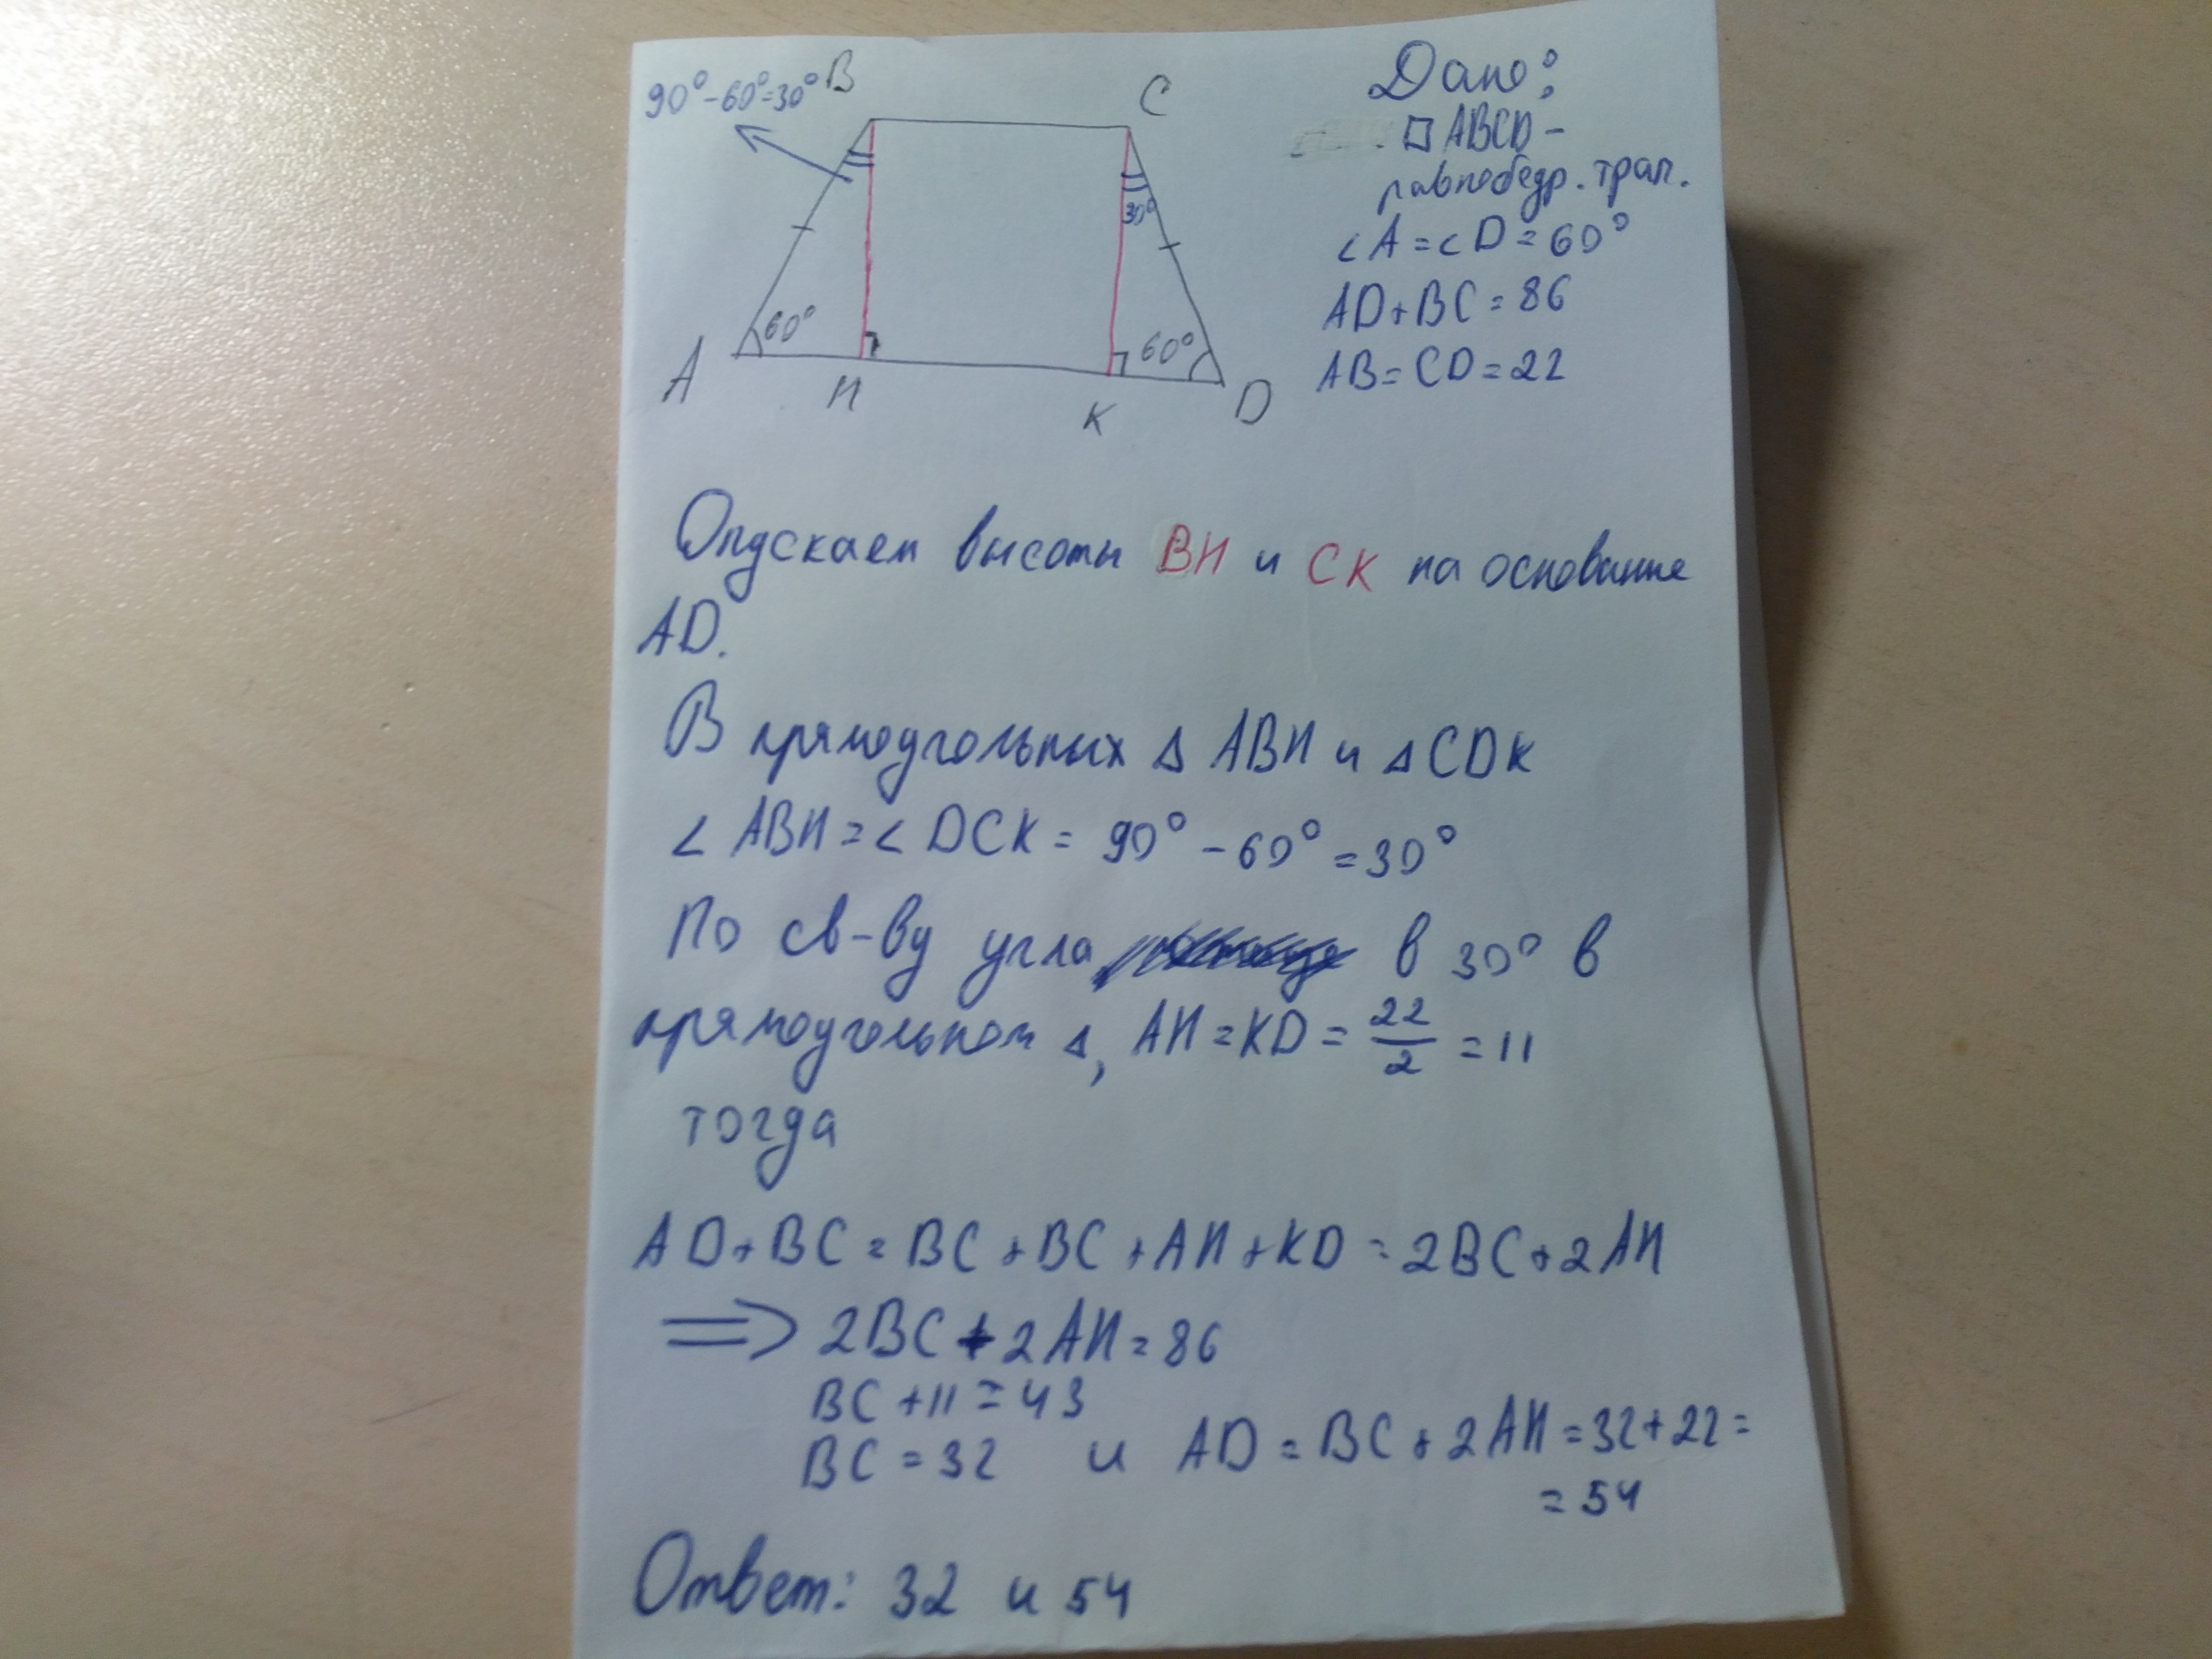 90°-60°=30°
B
C
30°
60°
60°
A
H
K
D
Дано:
□ABCD-
равнобедр. трап.
∠A=∠D=60°
AD+BC=86
AB=CD=22
Опускаем высоты BH и CK на основание
AD.
В прямоугольных Δ ABH и ΔCDK
∠ABH=∠DCK=90°-60°=30°
По св-ву угла в 30° в
прямоугольном Δ, AH=KD=22/2=11
тогда
AD+BC=BC+BC+AH+KD=2BC+2AH
⟹ 2BC+2AH=86
BC+11=43
BC=32 и AD=BC+2AH=32+22=
=54
Ответ: 32 и 54